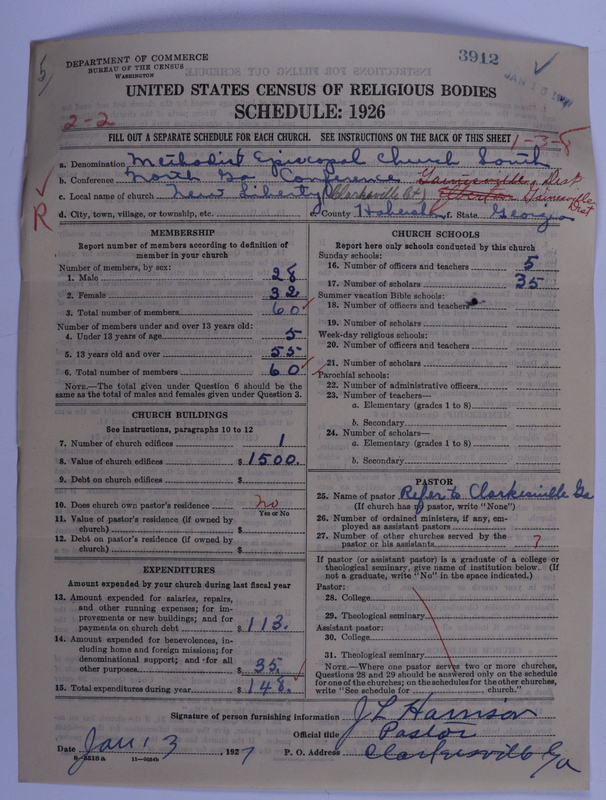 DEPARTMENT OF COMMERCE
BUREAU OF THE CENSUS
WASHINGTON
3912
UNITED STATES CENSUS OF RELIGIOUS BODIES
SCHEDULE: 1926
2-2
1-3-8
FILL OUT A SEPARATE SCHEDULE FOR EACH CHURCH. SEE INSTRUCTIONS ON THE BACK OF THIS SHEET
a. Denomination Methodist Episcopal Church South
b. Conference North Ga Conference Gainesville Dist
c. Local name of church New Liberty (Clarksville Ct) Gainesville Dist
d. City, town, village, or township, etc. e. County Habersham f. State Georgia
R
MEMBERSHIP
Report number of members according to definition of member in your church
Number of members, by sex:
1. Male 28
2. Female 32
3. Total number of members 60
Number of members under and over 13 years old:
4. Under 13 years of age 5
5. 13 years old and over 55
6. Total number of members 60
NOTE.—The total given under Question 6 should be the same as the total of males and females given under Question 3.
CHURCH BUILDINGS
See instructions, paragraphs 10 to 12
7. Number of church edifices 1
8. Value of church edifices $1500.
9. Debt on church edifices $
10. Does church own pastor's residence no
Yes or No
11. Value of pastor's residence (if owned by church) $
12. Debt on pastor's residence (if owned by church) $
EXPENDITURES
Amount expended by your church during last fiscal year
13. Amount expended for salaries, repairs, and other running expenses; for improvements or new buildings; and for payments on church debt $113.
14. Amount expended for benevolences, including home and foreign missions; for denominational support; and for all other purposes $35.
15. Total expenditures during year $148.
CHURCH SCHOOLS
Report here only schools conducted by this church
Sunday schools:
16. Number of officers and teachers 5
17. Number of scholars 35
Summer vacation Bible schools:
18. Number of officers and teachers
19. Number of scholars
Week-day religious schools:
20. Number of officers and teachers
21. Number of scholars
Parochial schools:
22. Number of administrative officers
23. Number of teachers—
a. Elementary (grades 1 to 8)
b. Secondary
24. Number of scholars—
a. Elementary (grades 1 to 8)
b. Secondary
PASTOR
25. Name of pastor Refer to Clarkesville Ga
(If church has no pastor, write "None")
26. Number of ordained ministers, if any, employed as assistant pastors
27. Number of other churches served by the pastor or his assistants 7
If pastor (or assistant pastor) is a graduate of a college or theological seminary, give name of institution below. (If not a graduate, write "No" in the space indicated.)
Pastor:
28. College
29. Theological seminary
Assistant pastor:
30. College
31. Theological seminary
NOTE.—Where one pastor serves two or more churches, Questions 28 and 29 should be answered only on the schedule for one of the churches; on the schedules for the other churches, write "See schedule for church."
Signature of person furnishing information J L Harrison
Official title Pastor
Date Jan 13, 1927 P. O. Address Clarkesville Ga